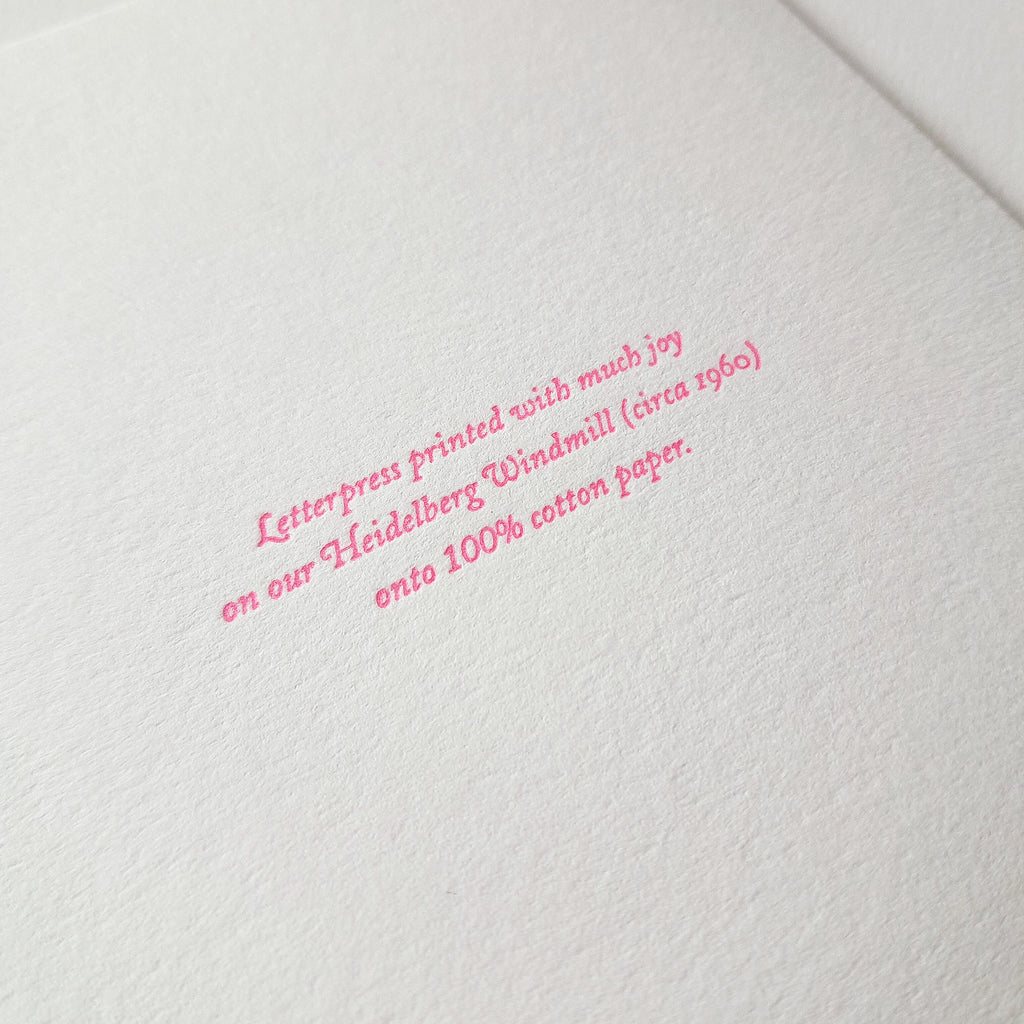 Letterpress printed with much joy
on our Heidelberg Windmill (circa 1960)
onto 100% cotton paper.